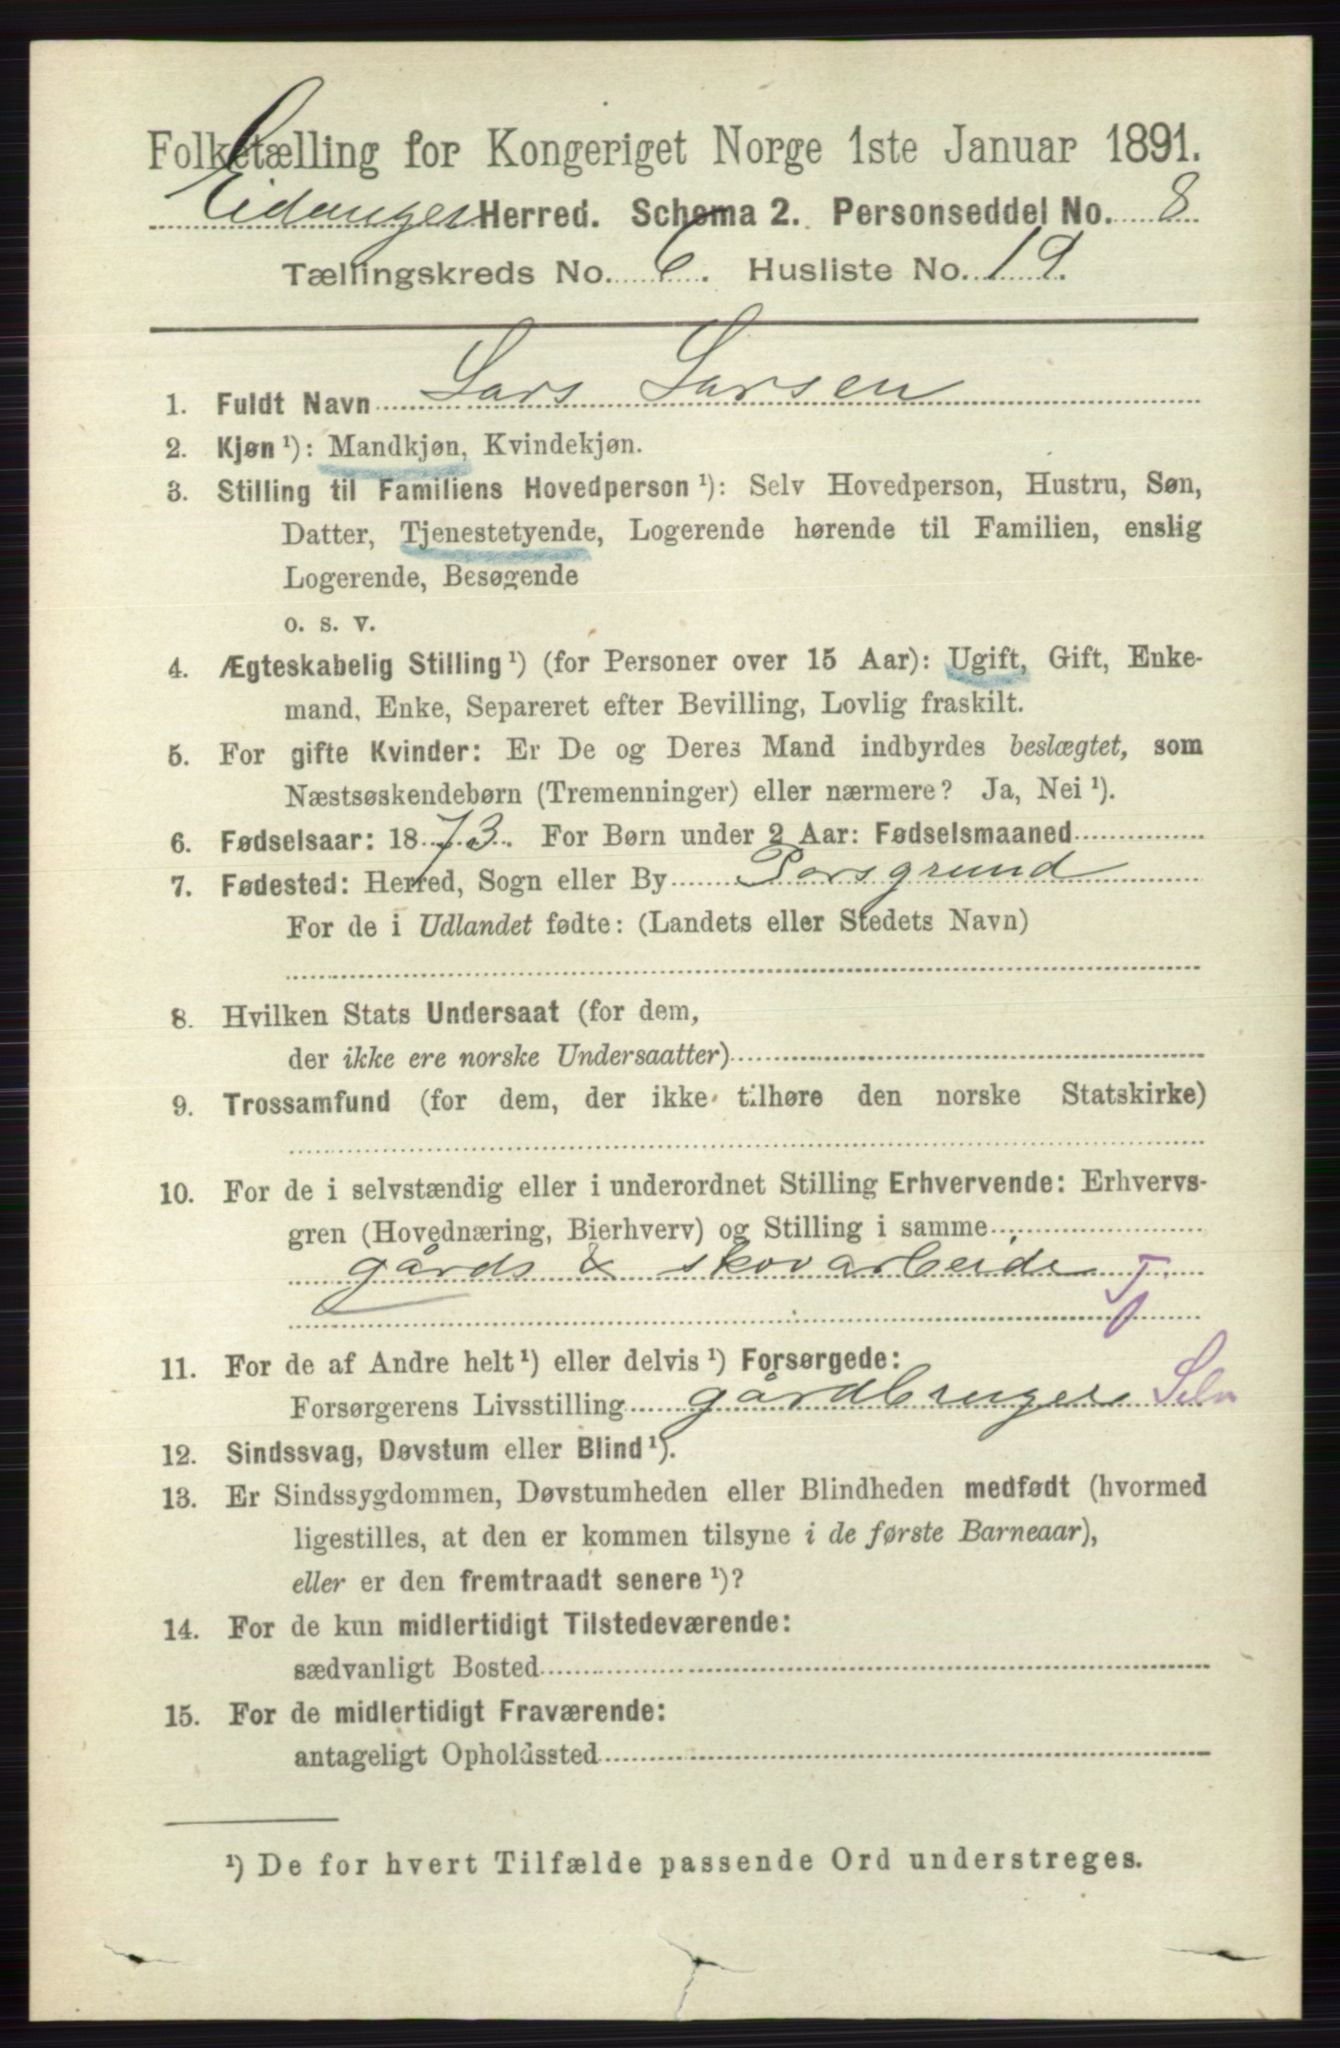 Folketælling for Kongeriget Norge 1ste Januar 1891.
Eidanger Herred. Schema 2. Personseddel No. 8
Tællingskreds No. 6. Husliste No. 19.
1. Fuldt Navn Lars Larsen
2. Kjøn ¹): Mandkjøn, Kvindekjøn.
3. Stilling til Familiens Hovedperson ¹): Selv Hovedperson, Hustru, Søn,
Datter, Tjenestetyende, Logerende hørende til Familien, enslig
Logerende, Besøgende
o. s. v.
4. Ægteskabelig Stilling ¹) (for Personer over 15 Aar): Ugift, Gift, Enke-
mand, Enke, Separeret efter Bevilling, Lovlig fraskilt.
5. For gifte Kvinder: Er De og Deres Mand indbyrdes beslægtet, som
Næstsøskendebørn (Tremenninger) eller nærmere? Ja, Nei ¹).
6. Fødselsaar: 1873. For Børn under 2 Aar: Fødselsmaaned
7. Fødested: Herred, Sogn eller By Porsgrund
For de i Udlandet fødte: (Landets eller Stedets Navn)
8. Hvilken Stats Undersaat (for dem,
der ikke ere norske Undersaatter)
9. Trossamfund (for dem, der ikke tilhøre den norske Statskirke)
10. For de i selvstændig eller i underordnet Stilling Erhvervende: Erhvervs-
gren (Hovednæring, Bierhverv) og Stilling i samme
gårds & skovarbeide T
11. For de af Andre helt ¹) eller delvis ¹) Forsørgede:
Forsørgerens Livsstilling gårdbruger Selv
12. Sindssvag, Døvstum eller Blind ¹).
13. Er Sindssygdommen, Døvstumheden eller Blindheden medfødt (hvormed
ligestilles, at den er kommen tilsyne i de første Barneaar),
eller er den fremtraadt senere ¹)?
14. For de kun midlertidigt Tilstedeværende:
sædvanligt Bosted
15. For de midlertidigt Fraværende:
antageligt Opholdssted
¹) De for hvert Tilfælde passende Ord understreges.